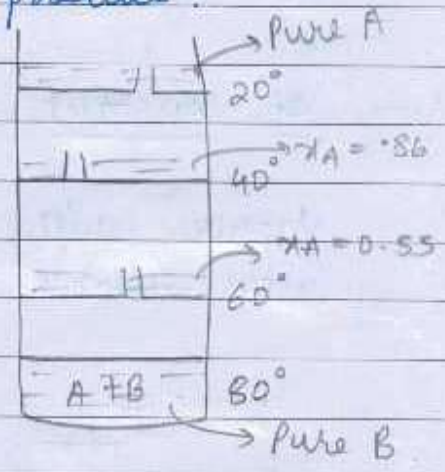 Pure A
20°
xA = .86
40°
xA = 0.55
60°
A+B
80°
Pure B